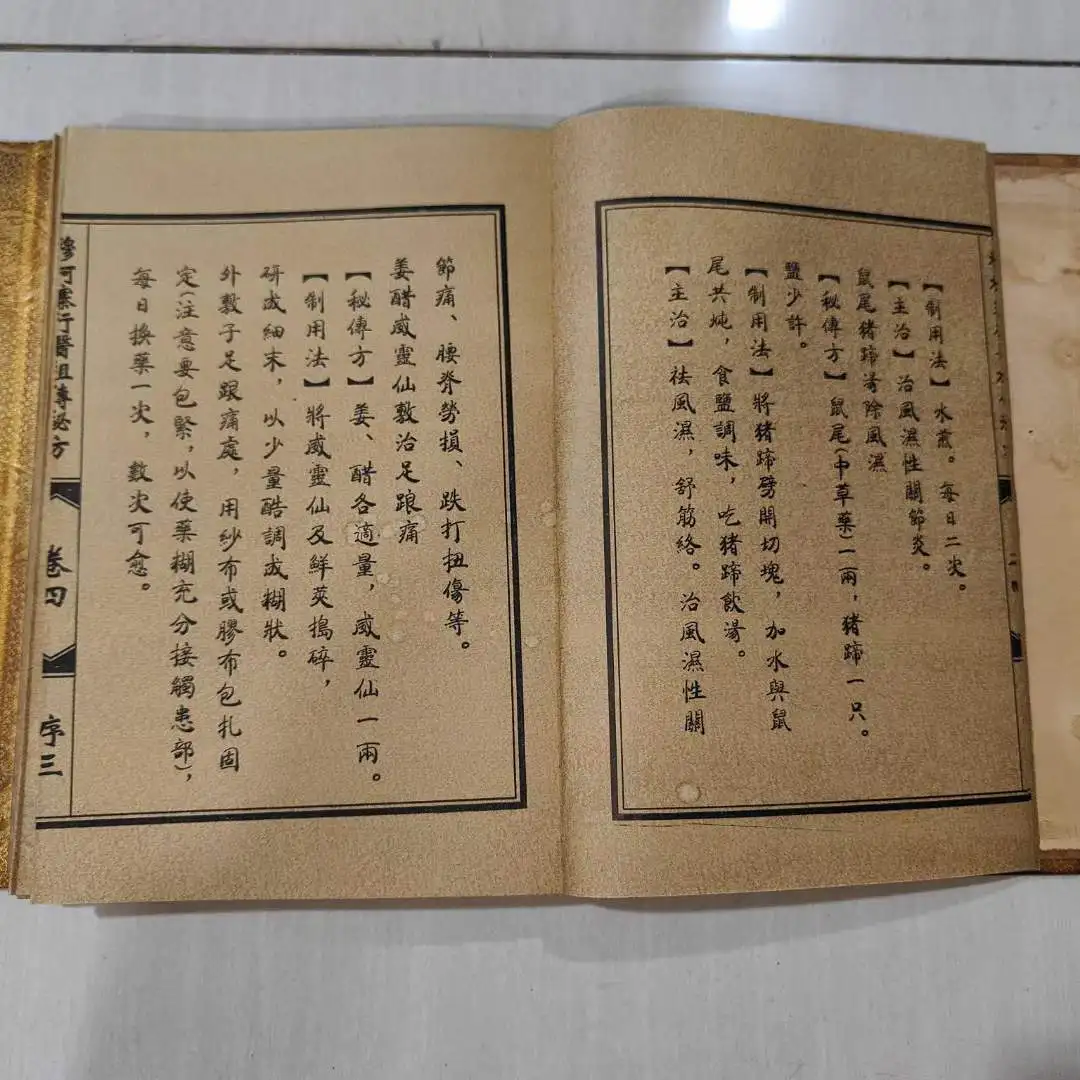 【制用法】水煎。每日二次。
【主治】治風濕性關節炎。
鼠尾猪蹄湯除風濕
【秘傳方】鼠尾(中草藥)一兩,猪蹄一只。
鹽少許。
【制用法】將猪蹄劈開切塊,加水與鼠
尾共炖,食鹽調味,吃猪蹄飲湯。
【主治】祛風濕,舒筋絡。治風濕性關
節痛、腰脊勞損、跌打扭傷等。
姜醋威靈仙敷治足跟痛
【秘傳方】姜、醋各適量,威靈仙一兩。
【制用法】將威靈仙及鮮英搗碎,
研成細末,以少量酷調成糊狀。
外敷子足跟痛處,用紗布或膠布包扎固
定(注意要包緊,以使藥糊充分接觸患部),
每日換藥一次,數次可愈。
行醫祖傳秘方
卷四
序三